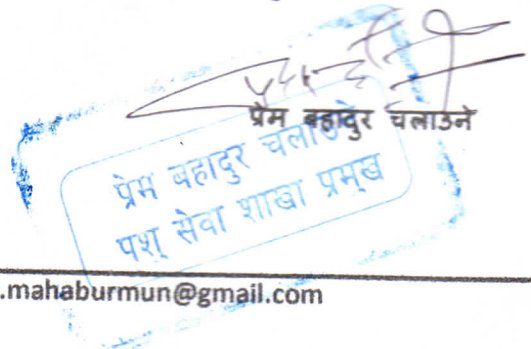 प्रेम बहादुर चलाउने
प्रेम बहादुर चलाउने
पशु सेवा शाखा प्रमुख
.mahaburmun@gmail.com